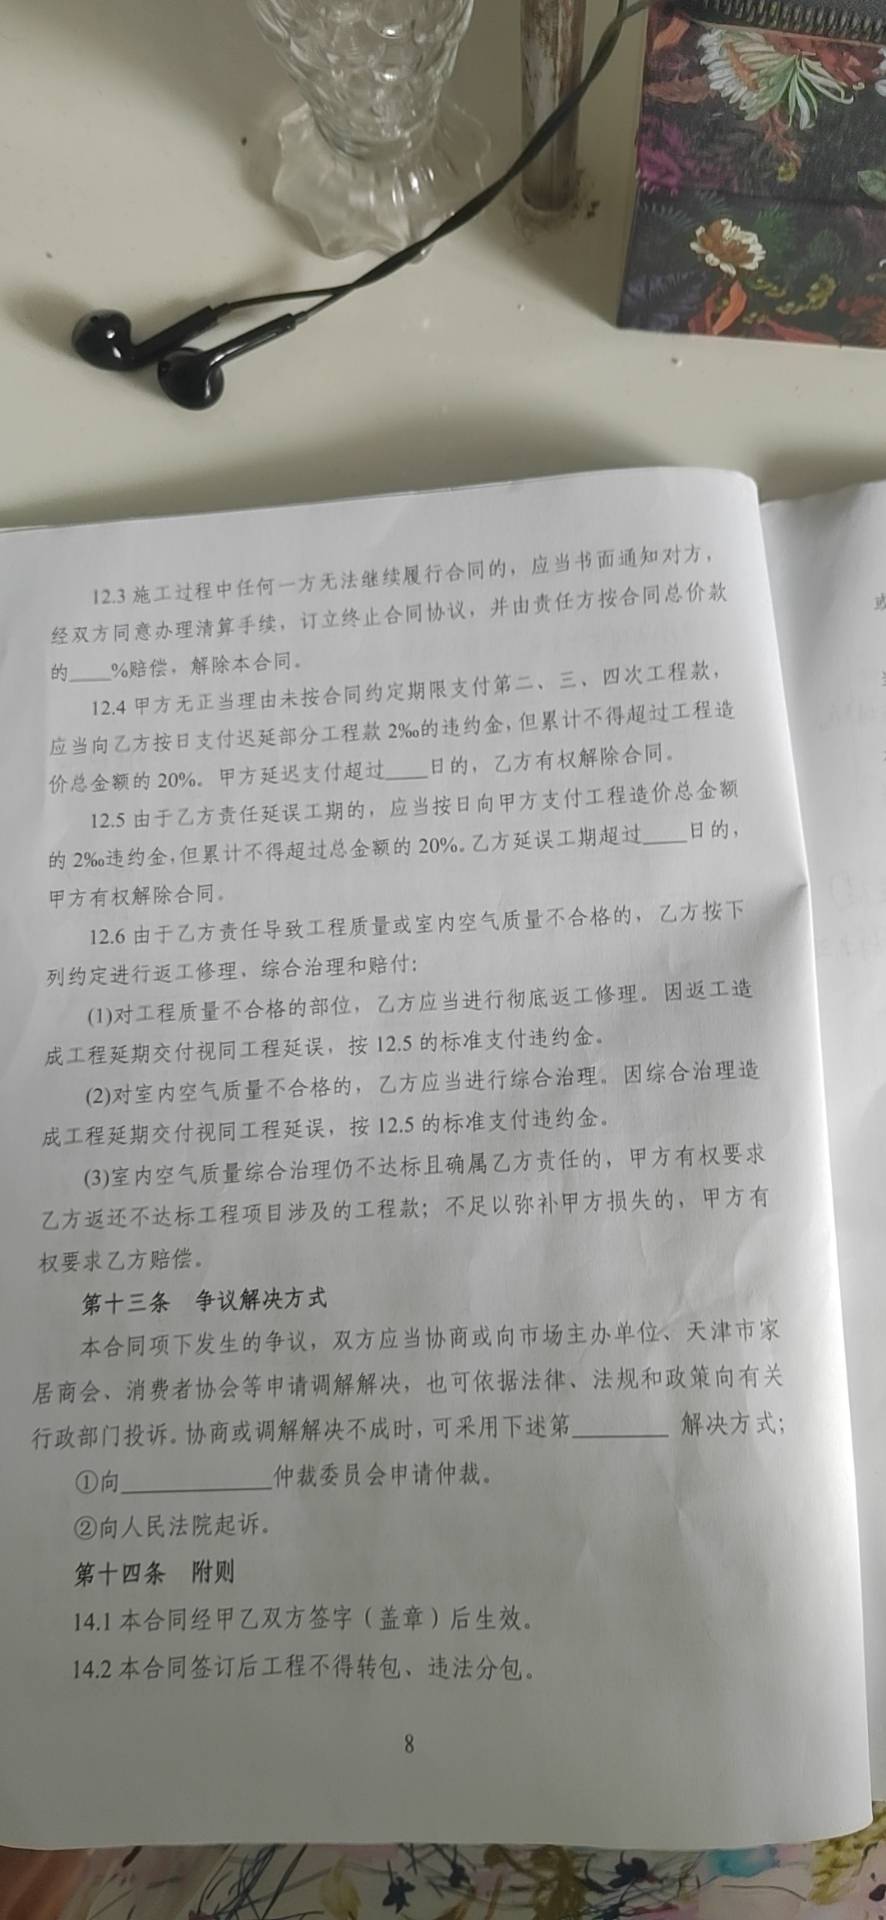 12.3 施工过程中任何一方无法继续履行合同的，应当书面通知对方，
经双方同意办理清算手续，订立终止合同协议，并由责任方按合同总价款
的____%赔偿，解除本合同。
12.4 甲方无正当理由未按合同约定期限支付第二、三、四次工程款，
应当向乙方按日支付迟延部分工程款 2‰的违约金，但累计不得超过工程造
价总金额的 20%。甲方延迟支付超过____日的，乙方有权解除合同。
12.5 由于乙方责任延误工期的，应当按日向甲方支付工程造价总金额
的 2‰违约金，但累计不得超过总金额的 20%。乙方延误工期超过____日的，
甲方有权解除合同。
12.6 由于乙方责任导致工程质量或室内空气质量不合格的，乙方按下
列约定进行返工修理、综合治理和赔付：
(1)对工程质量不合格的部位，乙方应当进行彻底返工修理。因返工造
成工程延期交付视同工程延误，按 12.5 的标准支付违约金。
(2)对室内空气质量不合格的，乙方应当进行综合治理。因综合治理造
成工程延期交付视同工程延误，按 12.5 的标准支付违约金。
(3)室内空气质量综合治理仍不达标且确属乙方责任的，甲方有权要求
乙方返还不达标工程项目涉及的工程款；不足以弥补甲方损失的，甲方有
权要求乙方赔偿。
第十三条 争议解决方式
本合同项下发生的争议，双方应当协商或向市场主办单位、天津市家
居商会、消费者协会等申请调解解决，也可依据法律、法规和政策向有关
行政部门投诉。协商或调解解决不成时，可采用下述第________ 解决方式；
①向____________仲裁委员会申请仲裁。
②向人民法院起诉。
第十四条 附则
14.1 本合同经甲乙双方签字（盖章）后生效。
14.2 本合同签订后工程不得转包、违法分包。
8